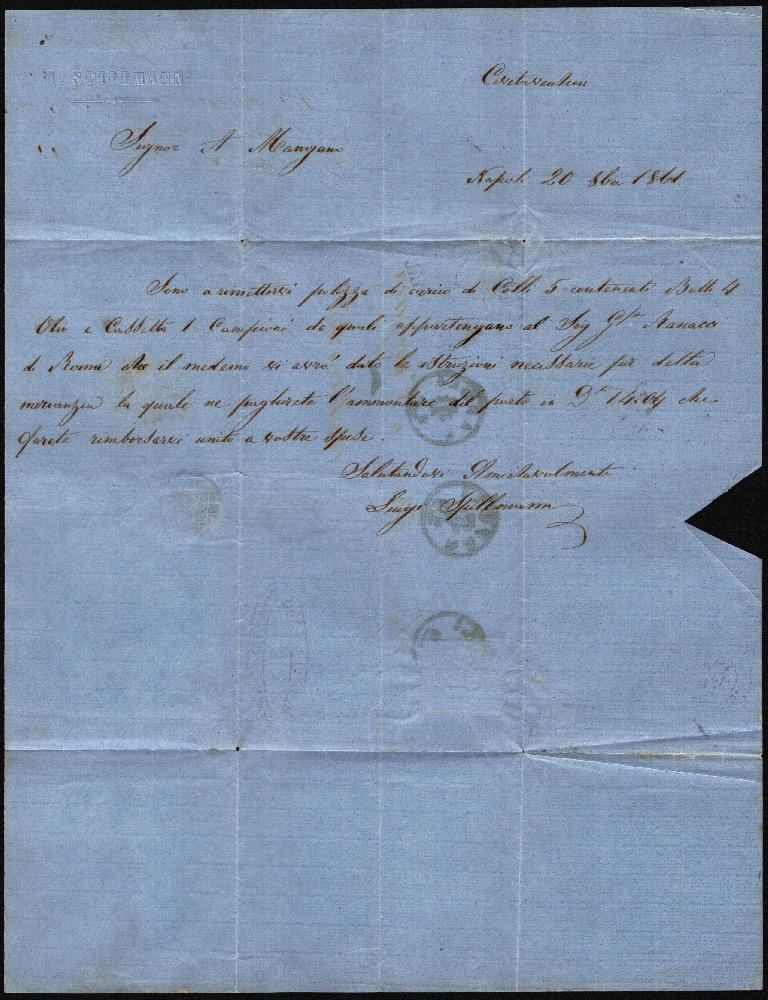 L. SPILLMANN
Civitavechia
Signor A Mangano
Napoli 20 8bre 1861
Sono a rimettervi polizza di carico di Colli 5 contenenti Balle 4
Olio e Cassetta 1 Campioni de quali appartengano al Sig Gpe
di Roma che il medemo vi avrà dato le istruzioni necessarie per detta
mercanzia la quale ne pagherete l'ammontare del porto in Dti 14:04 che
farete rimborsarvi unito a vostre spese.
Salutandovi Amichevolmente
Luigi Spillmann